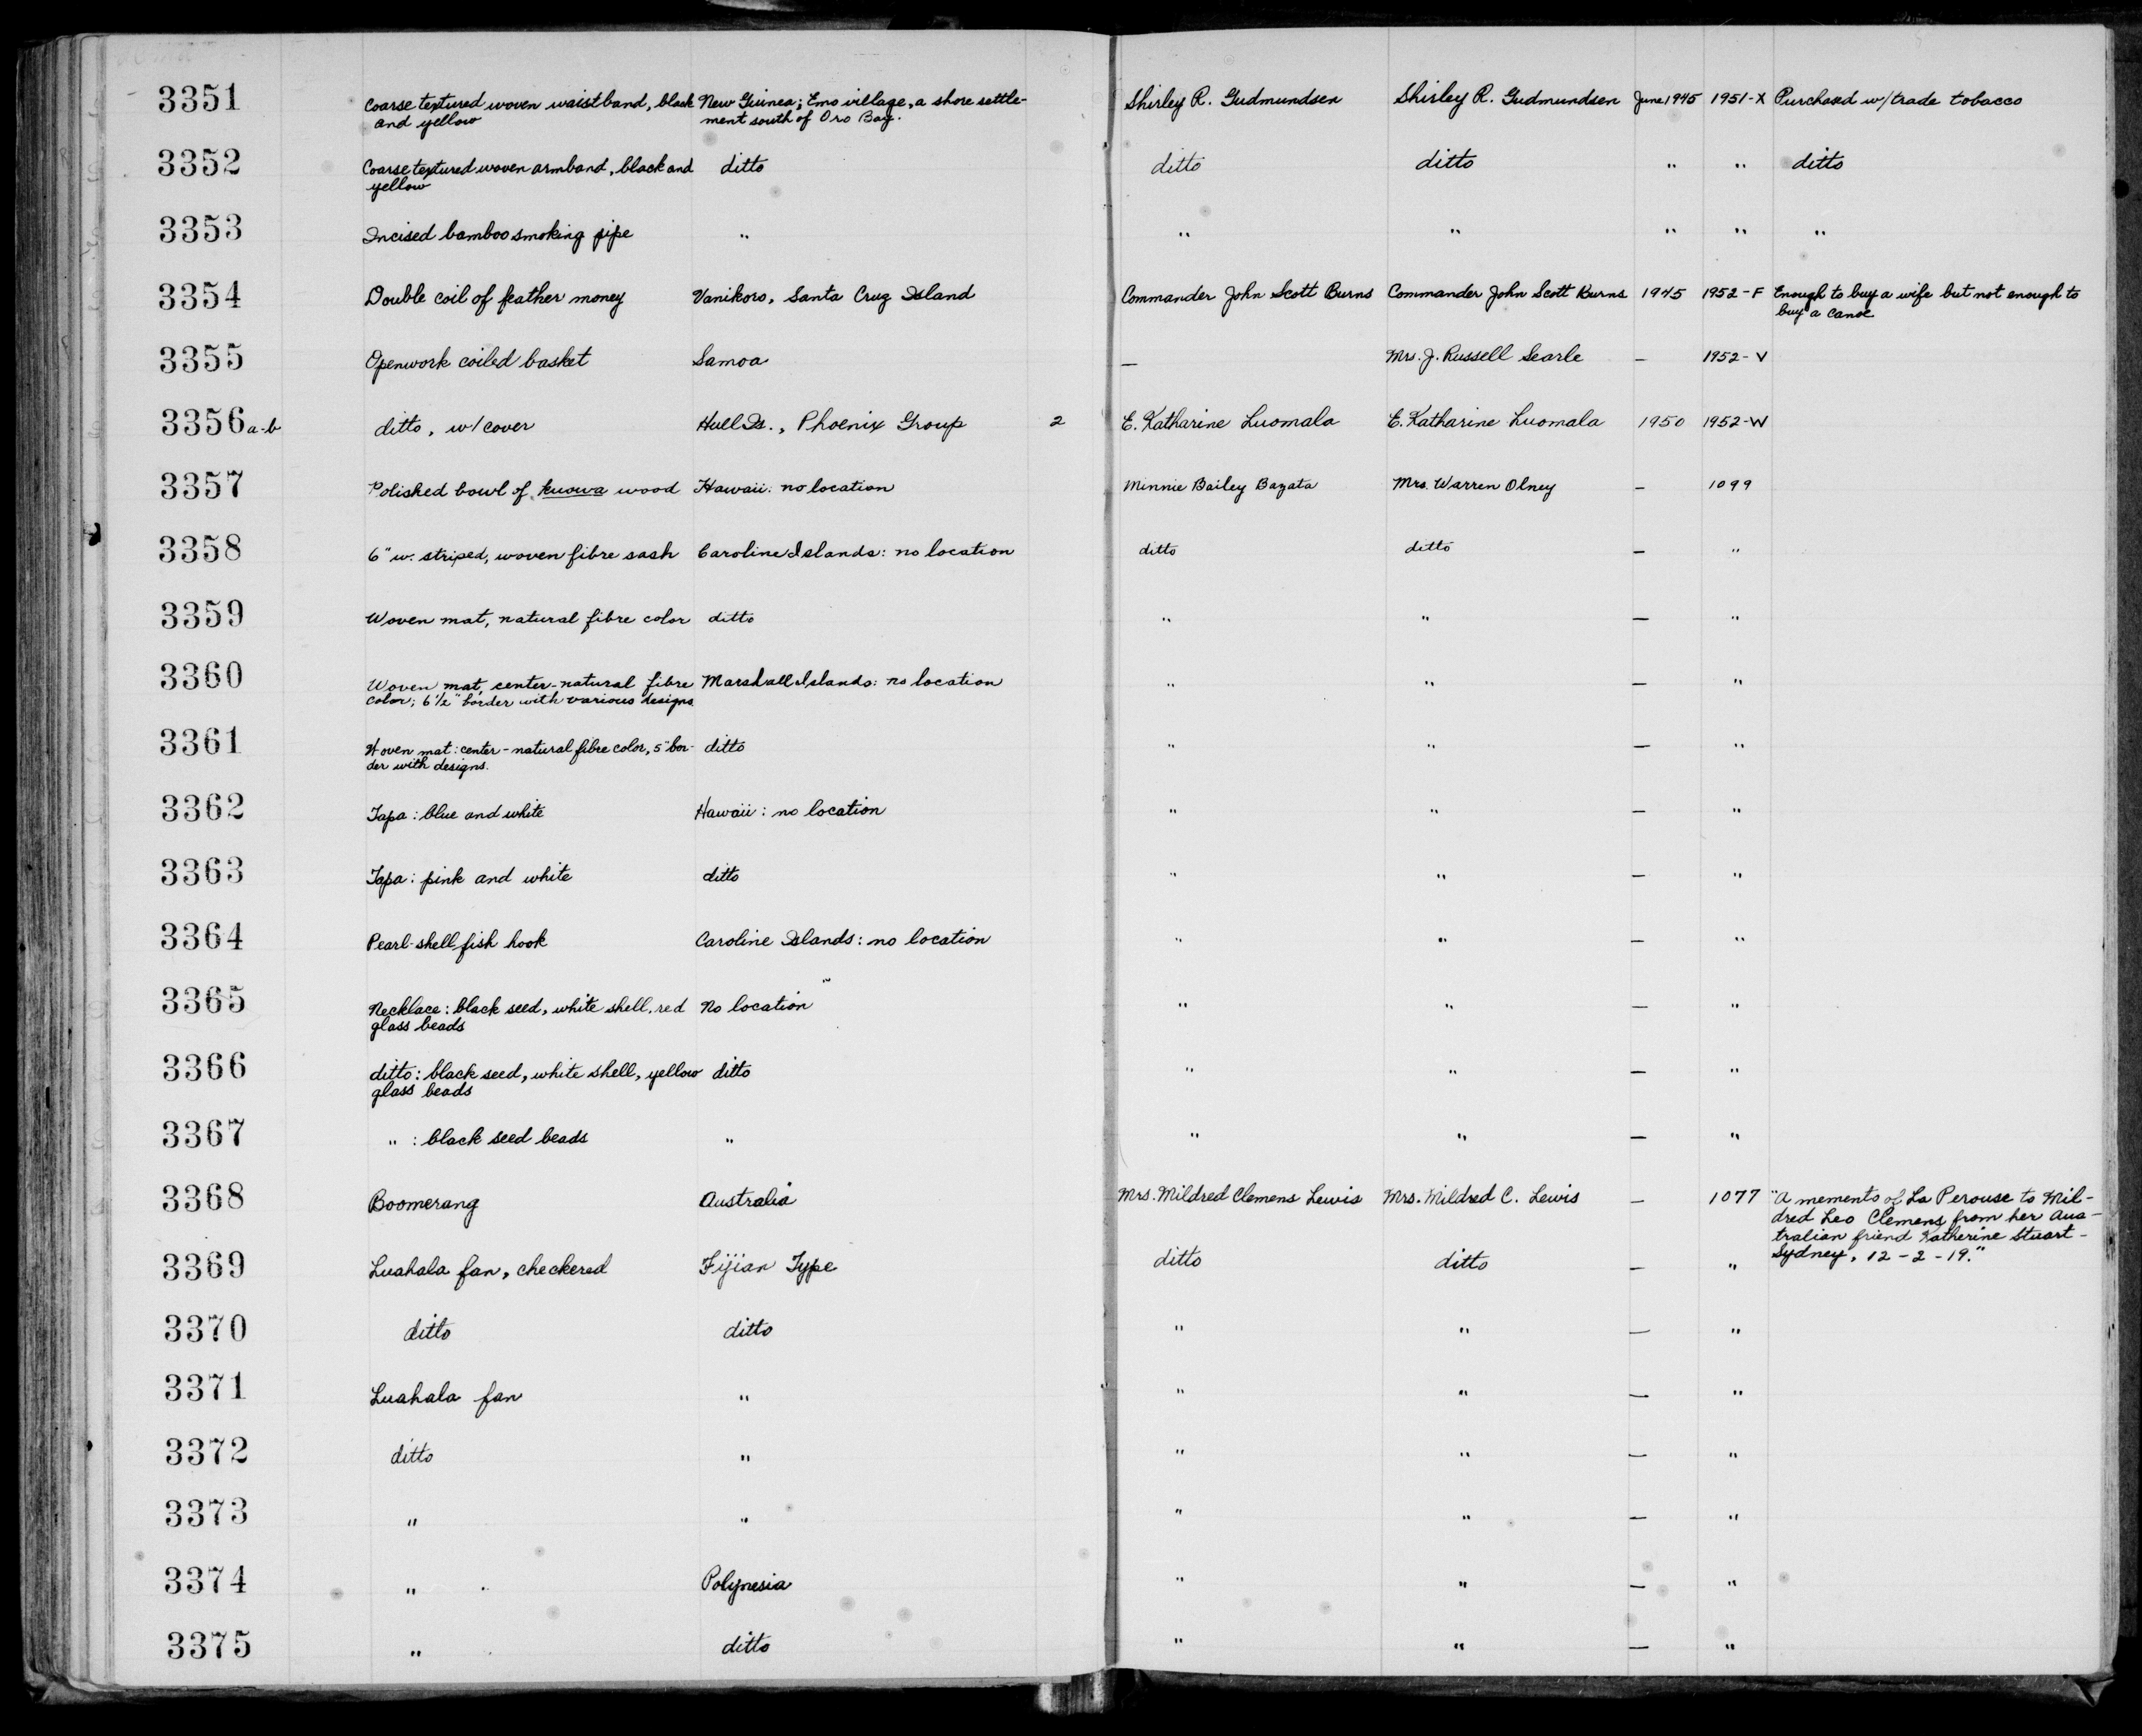 3351 Coarse textured woven waistband, black New Guinea; Emo village, a shore settle- Shirley R. Gudmundsen Shirley R. Gudmundsen June 1945 1951-X Purchased w/ trade tobacco
and yellow ment south of Oro Bay.
3352 Coarse textured woven armband, black and ditto ditto ditto " " ditto
yellow
3353 Incised bamboo smoking pipe " " " " " "
3354 Double coil of feather money Vanikoro, Santa Cruz Island Commander John Scott Burns Commander John Scott Burns 1945 1952-F Enough to buy a wife but not enough to
buy a canoe
3355 Openwork coiled basket Samoa — Mrs. J. Russell Searle — 1952-V
3356 a-b ditto, w/ cover Hull Is., Phoenix Group 2 E. Katharine Luomala E. Katharine Luomala 1950 1952-W
3357 Polished bowl of kuowa wood Hawaii: no location Minnie Bailey Bazata Mrs. Warren Olney — 1099
3358 6" w. striped, woven fibre sash Caroline Islands: no location ditto ditto — "
3359 Woven mat, natural fibre color ditto " " — "
3360 Woven mat, center-natural fibre Marshall Islands: no location " " — "
color; 6 1/2" border with various designs
3361 Woven mat: center - natural fibre color, 5" bor- ditto " " — "
der with designs.
3362 Tapa: blue and white Hawaii: no location " " — "
3363 Tapa: pink and white ditto " " — "
3364 Pearl-shell fish hook Caroline Islands: no location " " — "
3365 Necklace: black seed, white shell, red No location " " — "
glass beads
3366 ditto: black seed, white shell, yellow ditto " " — "
glass beads
3367 " : black seed beads " " " — "
3368 Boomerang Australia Mrs. Mildred Clemens Lewis Mrs. Mildred C. Lewis — 1077 "A memento of La Perouse to Mil-
dred Leo Clemens from her Aus-
tralian friend Katherine Stuart -
Sydney, 12-2-19."
3369 Luahala fan, checkered Fijian Type ditto ditto — "
3370 ditto ditto " " — "
3371 Luahala fan " " " — "
3372 ditto " " " — "
3373 " " " " — "
3374 " Polynesia " " — "
3375 " ditto " " — "